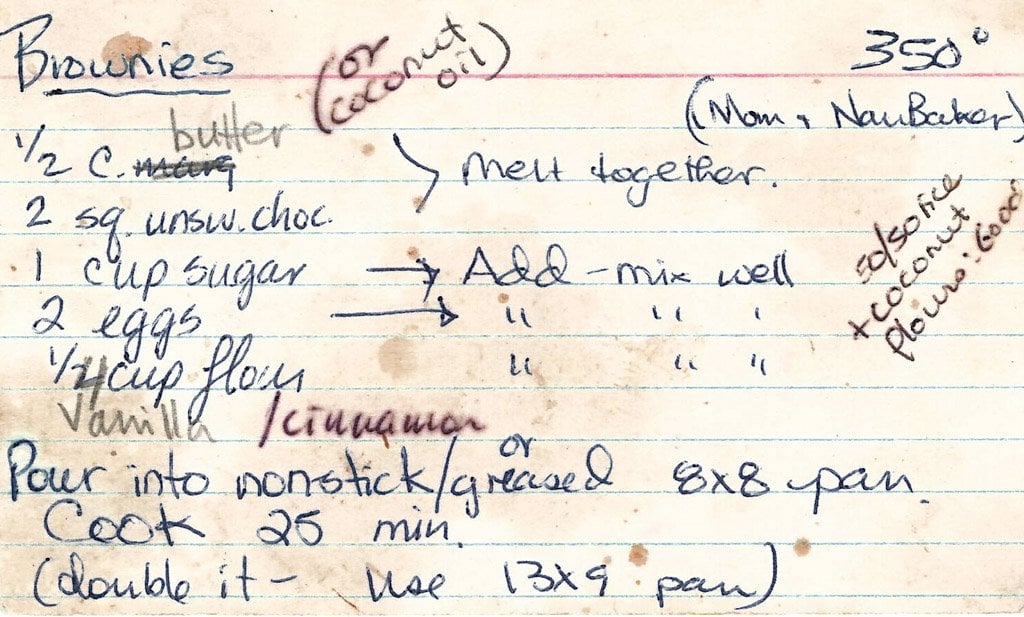 Brownies (or coconut oil) 350°
(Mom +
butter
1/2 C. marg > Melt together.
2 sq. unsw. choc.
1 cup sugar → Add - mix well
2 eggs → " " "
cup flour " " "
Vanilla /cinnamon
50/50 rice
+ coconut
Good
Pour into nonstick/or greased 8x8 pan.
Cook 25 min.
(double it - use 13x9 pan)